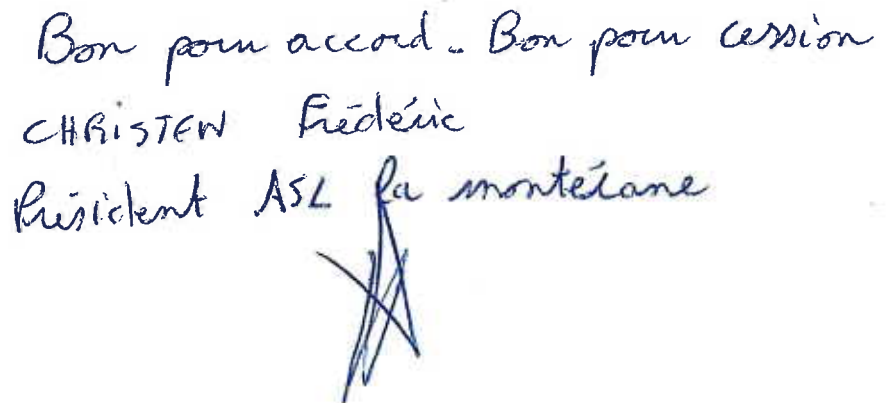 Bon pour accord. Bon pour cession
CHRISTEN Frédéric
Président ASL la montérane